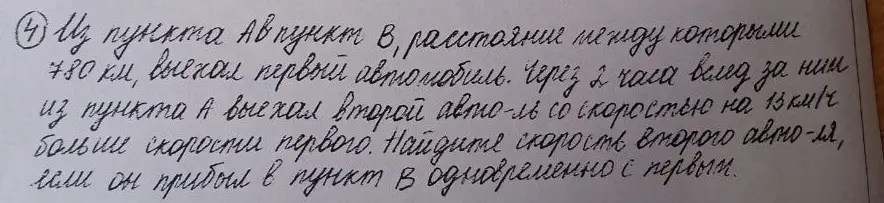 ④ Из пункта А в пункт В, расстояние между которыми
780 км, выехал первый автомобиль. Через 2 часа вслед за ним
из пункта А выехал второй авто-ль со скоростью на 13 км/ч
больше скорости первого. Найдите скорость второго авто-ля,
если он прибыл в пункт В одновременно с первым.